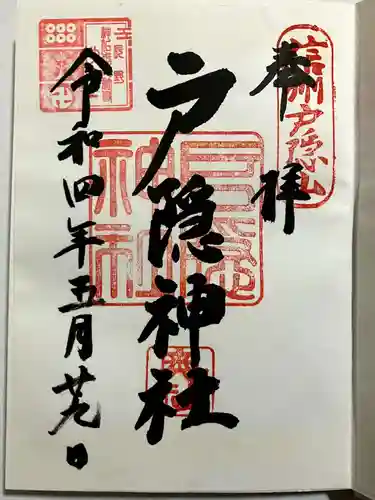 奉拝
信州戸隠山
戸隠神社
戸隠神社
令和四年五月廿九日